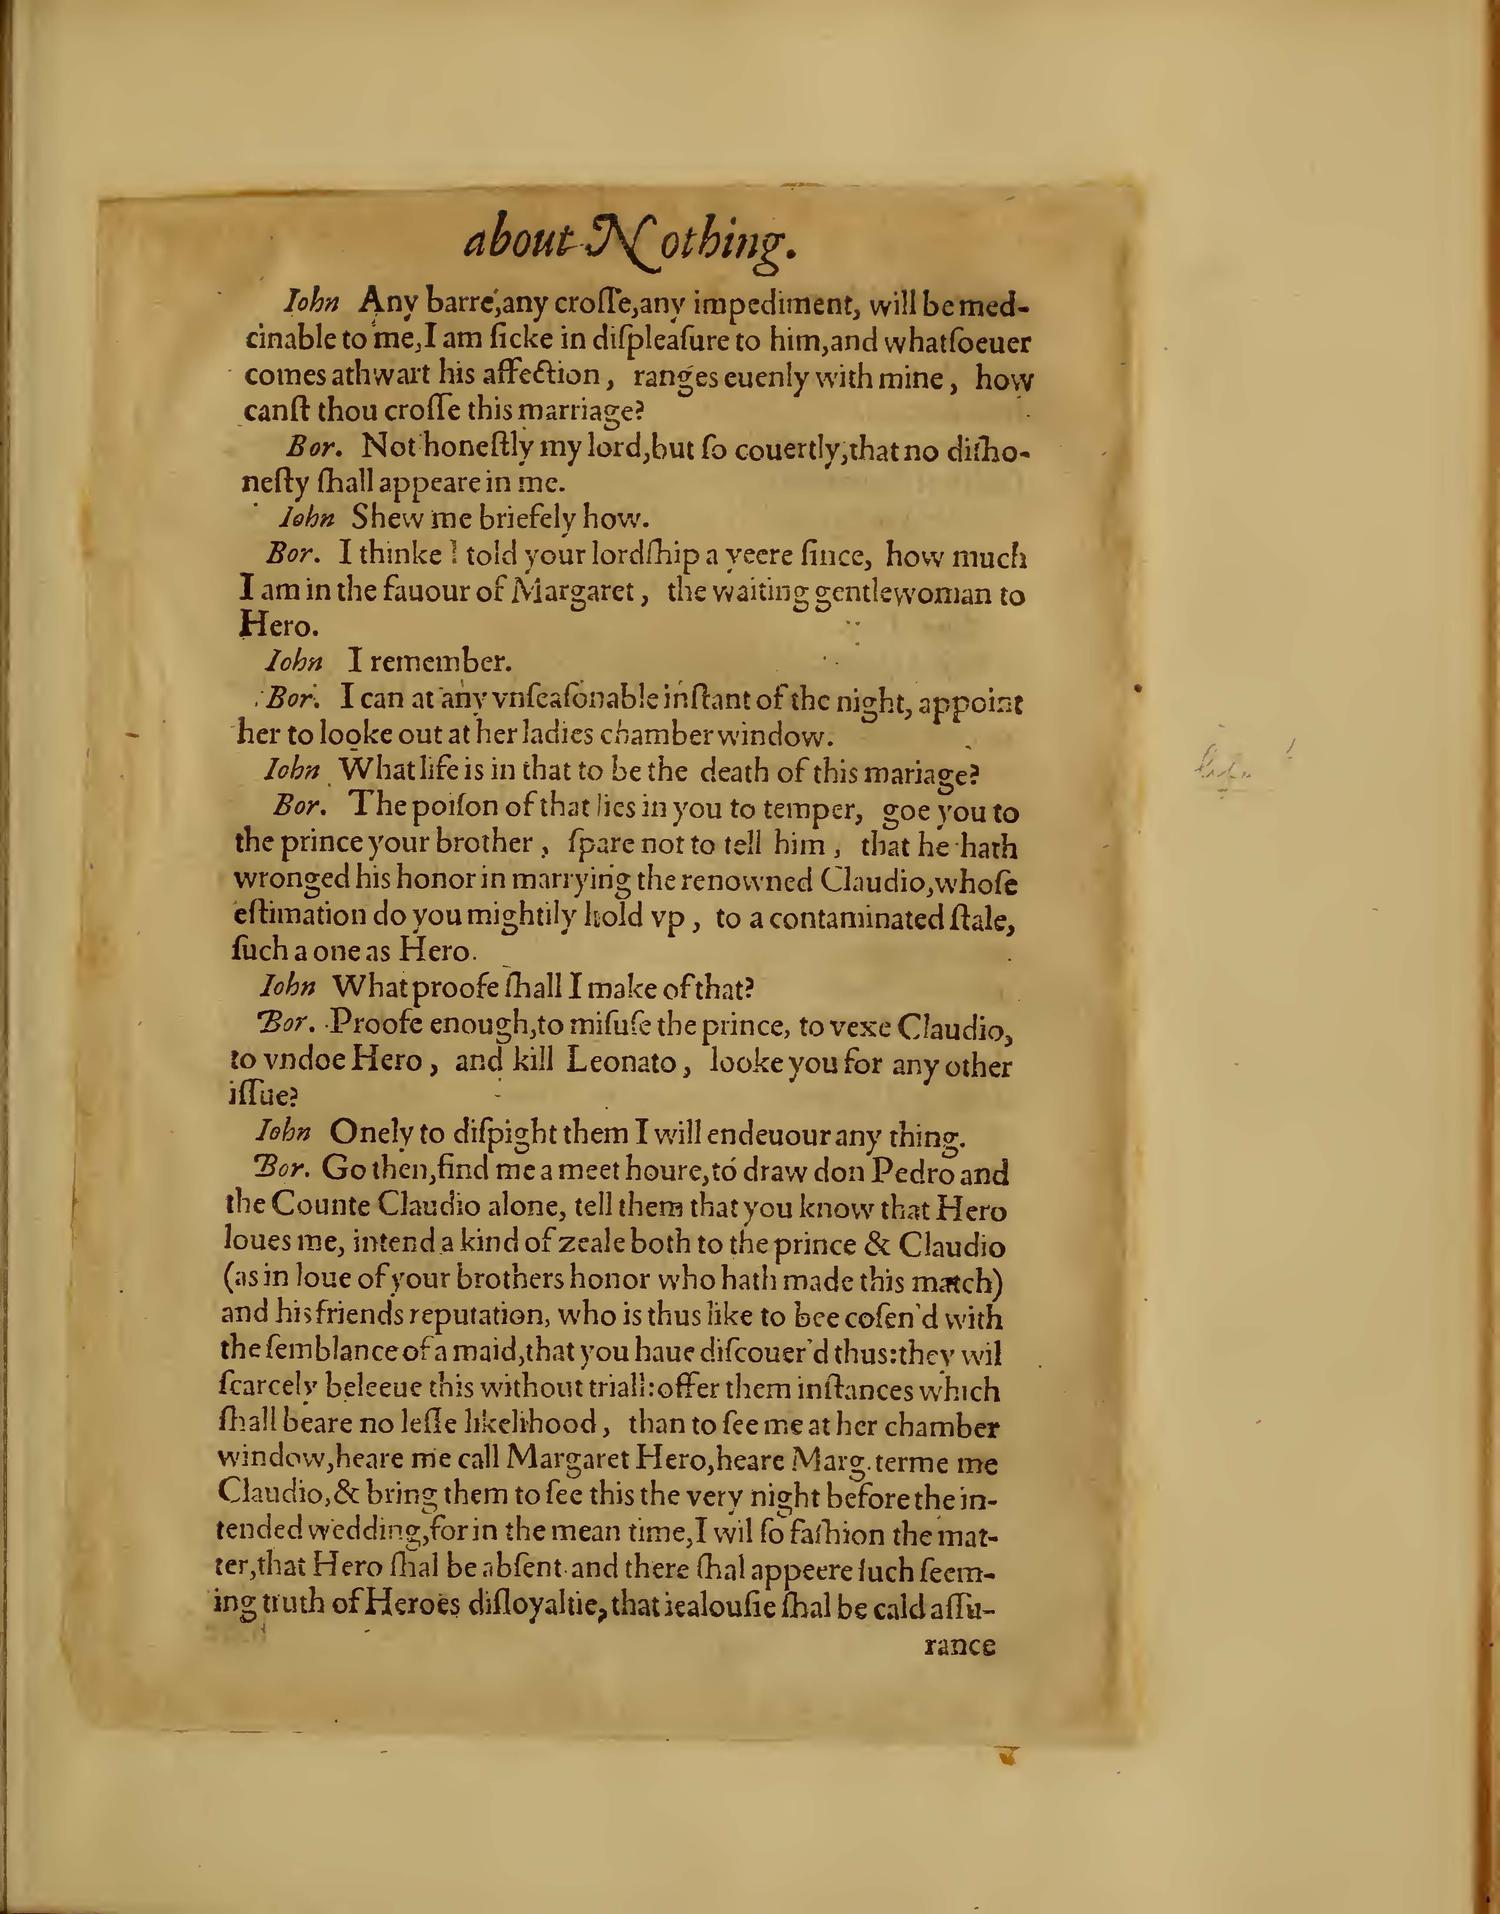 about Nothing.
Iohn Any barre,any croſſe,any impediment, will be med-
cinable to me,I am ſicke in diſpleaſure to him,and whatſoeuer
comes athwart his affection, ranges euenly with mine, how
canſt thou croſſe this marriage?
Bor. Not honeſtly my lord,but ſo couertly,that no diſho-
neſty ſhall appeare in me.
Iohn Shew me briefely how.
Bor. I thinke I told your lordſhip a yeere ſince, how much
I am in the fauour of Margaret, the waiting gentlewoman to
Hero.
Iohn I remember.
Bor. I can at any vnſeaſonable inſtant of the night, appoint
her to looke out at her ladies chamber window.
Iohn What life is in that to be the death of this mariage?
Bor. The poiſon of that lies in you to temper, goe you to
the prince your brother, ſpare not to tell him, that he hath
wronged his honor in marrying the renowned Claudio,whoſe
eſtimation do you mightily hold vp, to a contaminated ſtale,
ſuch a one as Hero.
Iohn What proofe ſhall I make of that?
Bor. Proofe enough,to miſuſe the prince, to vexe Claudio,
to vndoe Hero, and kill Leonato, looke you for any other
iſſue?
Iohn Onely to diſpight them I will endeuour any thing.
Bor. Go then,find me a meet houre,to draw don Pedro and
the Counte Claudio alone, tell them that you know that Hero
loues me, intend a kind of zeale both to the prince & Claudio
(as in loue of your brothers honor who hath made this match)
and his friends reputation, who is thus like to bee coſen'd with
the ſemblance of a maid,that you haue diſcouer'd thus:they wil
ſcarcely beleeue this without triall:offer them inſtances which
ſhall beare no leſſe likelihood, than to ſee me at her chamber
window,heare me call Margaret Hero,heare Marg. terme me
Claudio,& bring them to ſee this the very night before the in-
tended wedding,for in the mean time,I wil ſo faſhion the mat-
ter,that Hero ſhal be abſent and there ſhal appeere ſuch ſeem-
ing truth of Heroes diſloyaltie, that iealouſie ſhal be cald aſſu-
rance